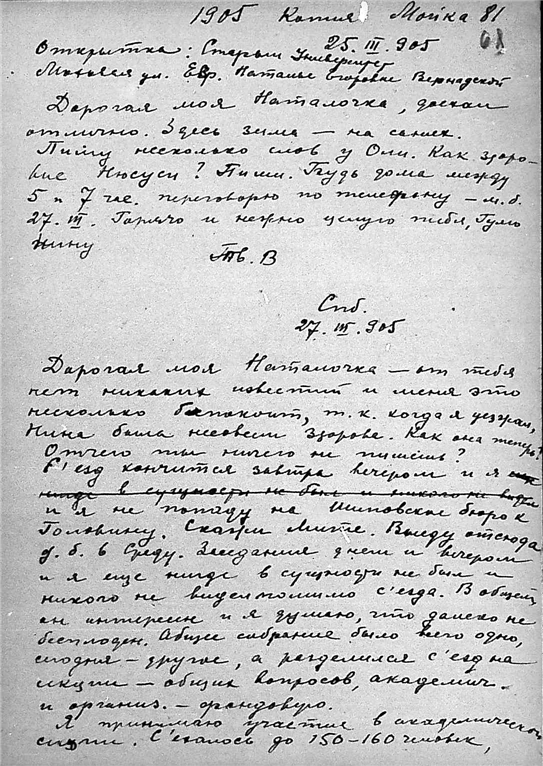 1905 Копия Мойка 81
25.III.905
61
Открытка: Старый Университет
Моховая ул. ЕВр. Наталье Егоровне Вернадской
Дорогая моя Наталочка, доехал
отлично. Здесь зима – на санях.
Пишу несколько слов у Оли. Как здоро-
вие Нюсуси? Пиши. Будь дома между
5 и 7 час. переговорю по телефону – м.б.
27.III. Горячо и нежно целую тебя, Гулю
Нину
Тв. В
Спб.
27.III.905
Дорогая моя Наталочка – от тебя
нет никаких известий и меня это
несколько беспокоит, т.к. когда я уезжал,
Нина была не совсем здорова. Как она теперь?
Отчего ты ничего не пишешь?
С'езд кончится завтра вечером и я еще
нигде в сущности не был и никого не видел
и я не попаду на Шиповское бюро к
Головину. Скажи Мите. Выеду отсюда
д.б. в Среду. Заседания днем и вечером
и я еще нигде в сущности не был и
никого не видел помимо с'езда. В общем
он интересен и я думаю, что далеко не
бесплоден. Общее собрание было всего одно,
сегодня – другое, а разделился с'езд на
секции – общих вопросов, академич.
и организ. –
Я принимаю участие в академической
секции. С'ехалось до 150–160 человек,